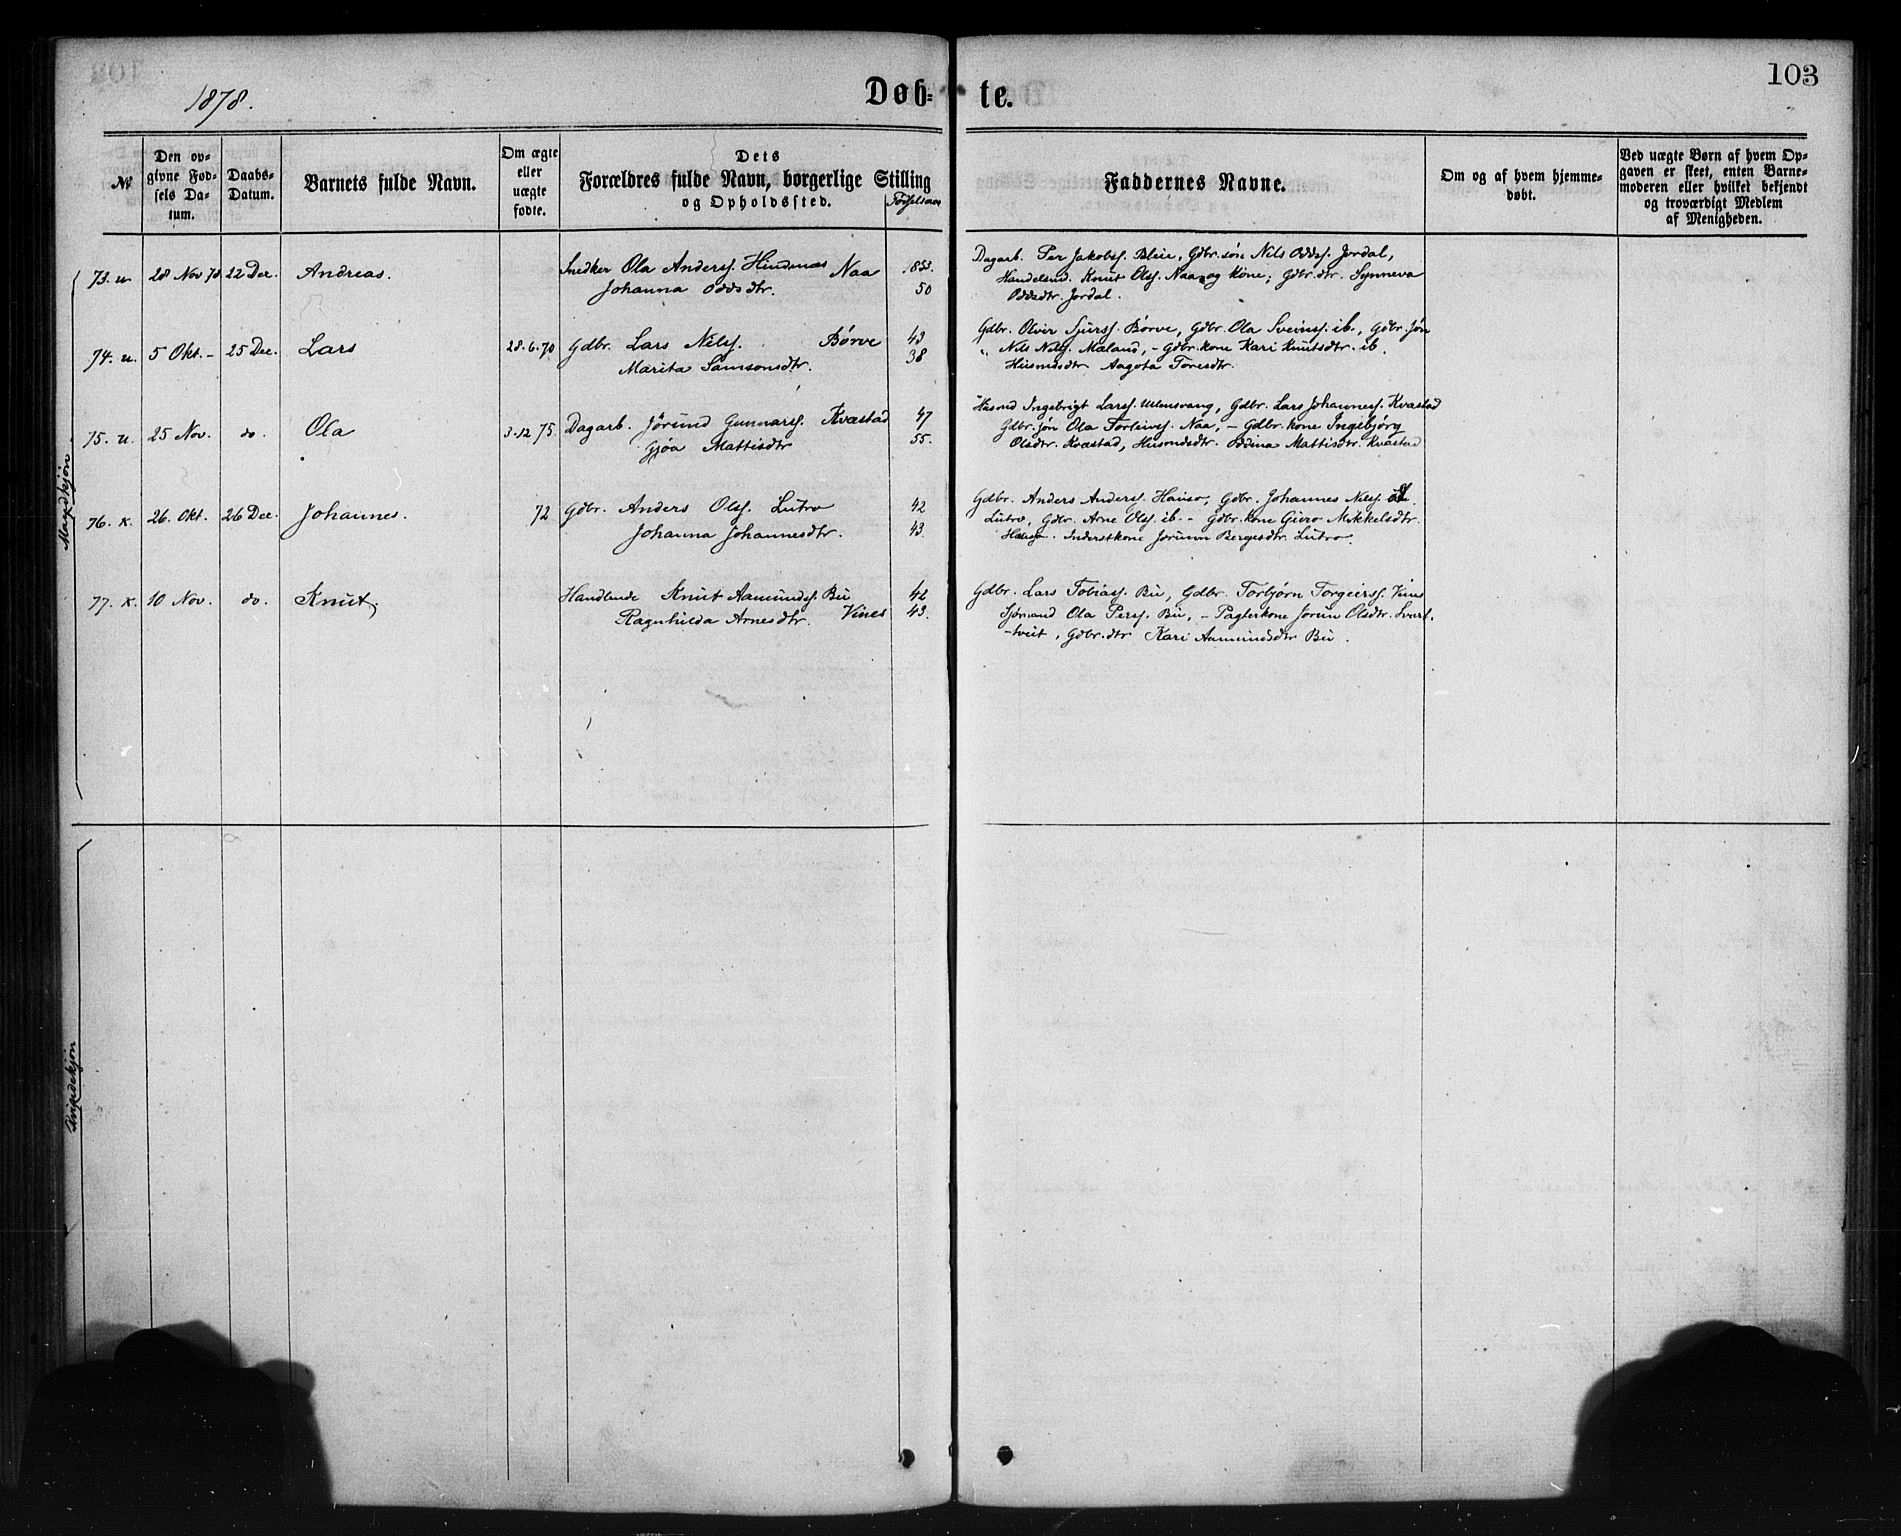 1878.
Døb= te.
103
№
Den op-
givne Fød-
sels Da-
tum.
Daabs-
Datum.
Barnets fulde Navn.
Om ægte
eller
uægte
fødte.
Dets
Forældres fulde Navn, borgerlige Stilling
og Opholdssted.
Fødselsaar
Faddernes Navne.
Om og af hvem hjemme-
døbt.
Ved uægte Børn af hvem Op-
gaven er skeet, enten Barne-
moderen eller hvilket bekjendt
og troværdigt Medlem
af Menigheden.
Mandkjøn
73. u. 28 Nov 78 22 Dec. Andreas. Snedker Ola Anderss. Hindenæs Naa 1853.
Johanna Oddsdtr. 50
Dagarb. Per Jakobss. Bleie, Gdbr. søn Nils Oddss. Jordal,
Handelsmd. Knut Olss. Naa og Kone; Gdbr. dtr. Synneva
Oddsdtr. Jordal.
74. u. 5 Okt. - 25 Dec. Lars 28.6.70 Gdbr. Lars Nilss. Børve 43
Marita Samsonsdtr. 38
Gdbr. Olvir Sjurss. Børve, Gdbr. Ola Sveinss. ib., Gdbr. søn
" Nils Nilss. Mæland, - Gdbr. kone Kari Knutsdtr. ib.
Husmdsdtr Aagota Toresdtr.
75. u. 25 Nov. do. Ola 3.12 75. Dagarb. Jörund Gunnarss. Kvæstad 47
Gjøa Mattisdtr 55.
Husmd Ingebrigt Larss. Ullensvang, Gdbr. Lars Johanness. Kvæstad
Gdbr. søn Ola Torleivs. Naa, - Gdbr. kone Ingebjörg
Olsdtr. Kvæstad, Husmdsdtr. Oddina Mattisdtr. Kvæstad
76. K. 26. Okt. 26 Dec. Johannes. 72 Gdbr. Anders Olss. Lutro 42
Johanna Johannesdtr. 43.
Gdbr. Anders Anderss. Hauso, Gdbr. Johannes Nilss.
Lutro, Gdbr. Arne Olss. ib. - Gdbr. kone Guro Mikkelsdtr.
Hauso. Inderstkone Jorunn Bergesdtr. Lutro.
77. K. 10 Nov. do. Knut, Handlende Knut Aamundss. Bu 42
Ragnhilda Arnesdtr. Vines 43.
Gdbr. Lars Tobiass. Bu, Gdbr. Torbjørn Torgeirss. Vines
Sjømand Ola Perss. Bu, - Pagterkone Jorun Olsdtr.
-tveit, Gdbr. dtr Kari Aamundsdtr Bu.
Kvindekjøn